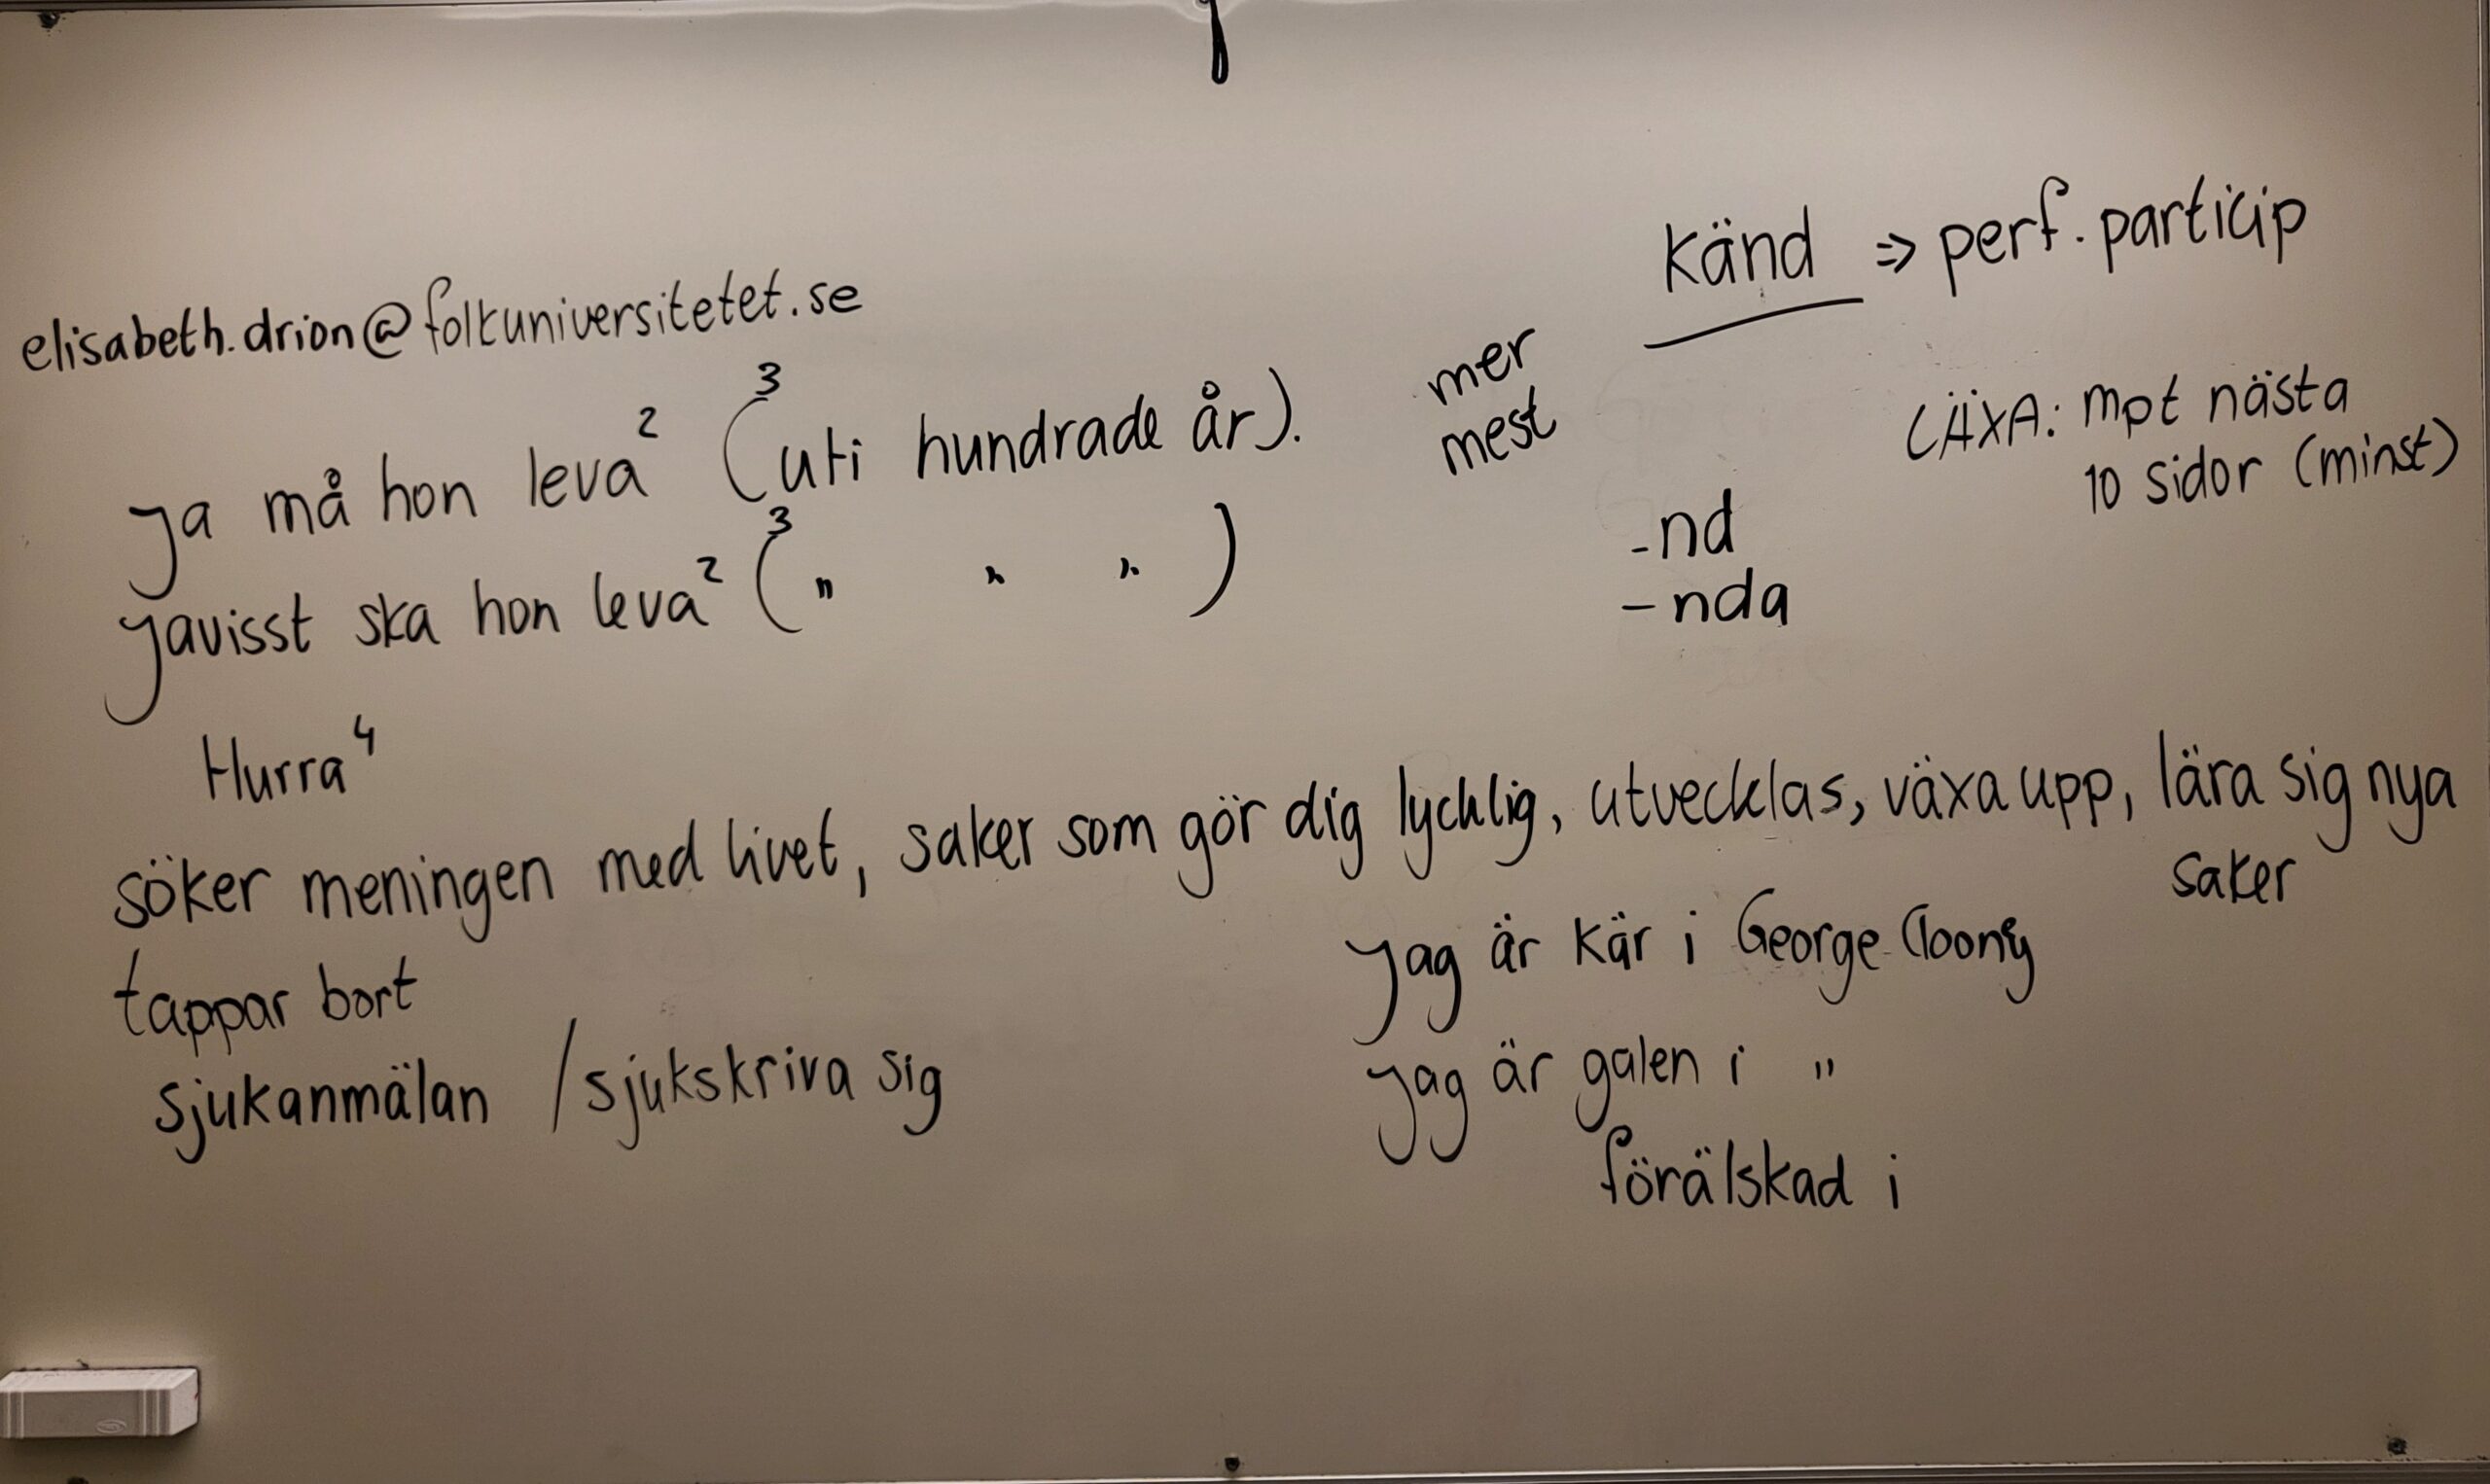 elisabeth.drion@folkuniversitetet.se
Känd ⇒ perf. particip
mer
mest
LÄXA: mot nästa
10 sidor (minst)
ja må hon leva² (³uti hundrade år).
javisst ska hon leva² (³" " ")
-nd
-nda
Hurra⁴
söker meningen med livet, saker som gör dig lycklig, utvecklas, växa upp, lära sig nya
saker
tappar bort
sjukanmälan / sjukskriva sig
jag är kär i George Cloony
jag är galen i "
förälskad i